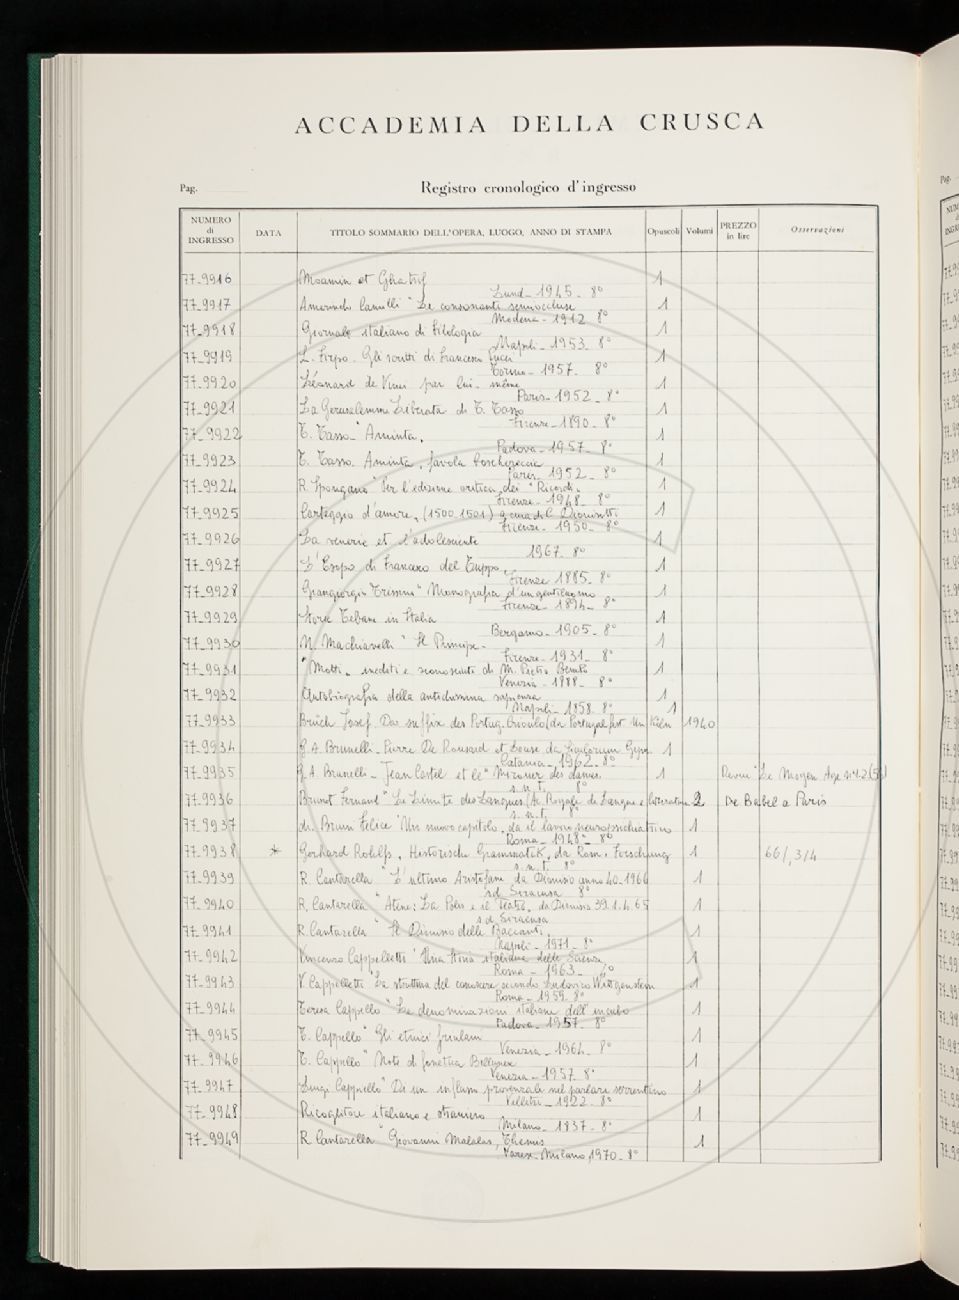 ACCADEMIA DELLA CRUSCA
Pag.
Registro cronologico d'ingresso
NUMERO di INGRESSO DATA TITOLO SOMMARIO DELL'OPERA, LUOGO, ANNO DI STAMPA Opuscoli Volumi PREZZO in lire Osservazioni
77-9916 Moamin et Ghatrif 1
Lund - 1945 - 8°
77-9917 Amerindo Camilli "Le consonanti semiocclusе 1
Modena - 1912 8°
77-9918 Giornale italiano di Filologia 1
Napoli - 1953 - 8°
77-9919 L. Firpo - Gli scritti di Francesco Pucci 1
Torino - 1957 - 8°
77-9920 Léonard de Vinci par lui-même 1
Paris - 1952 - 8°
77-9921 La Gerusalemme Liberata di T. Tasso 1
Firenze - 1890 - 8°
77-9922 T. Tasso - "Aminta, 1
Padova - 1957 - 8°
77-9923 T. Tasso. Aminta, favola boschereccia 1
Paris - 1952 - 8°
77-9924 R. Spongano "Per l'edizione critica dei "Ricordi, 1
Firenze - 1948 - 8°
77-9925 Carteggio d'amore, (1500.1501) a cura di C. Dionisotti 1
Firenze - 1950 - 8°
77-9926 La et l'adolescente 1
1967 - 8°
77-9927 L'Esopo di Francesco del Tuppo, 1
Firenze 1885 - 8°
77-9928 Giangiorgio Trissino "Monografia d'un gentiluomo 1
Firenze - 1894 - 8°
77-9929 Storie Tebane in Italia 1
Bergamo - 1905 - 8°
77-9930 N. Machiavelli "Il Principe - 1
Firenze - 1931 - 8°
77-9931 "Motti, inediti e sconosciuti di M. Pietro Bembo 1
Venezia - 1888 - 8°
77-9932 Autobiografia della antichissima sapienza 1
Napoli - 1858 - 8° 1
77-9933 Brüch Josef. Das suffix des Portug. (da Portugal fest. Un Köln 1940
77-9934 G. A. Brunelli - Pierre De Ronsard et da Siculorum Gymn. 1
Catania - 1962 - 8°
77-9935 G. A. Brunelli - Jean Castel et le "Mirouer des dames 1 Revue "Le Moyen Age n° 1-2 (56)
s.n.t. 8°
77-9936 Brunot Fernand "La Limite des Langues (Ac. Royale de Langue e literature 2 De Babel a Paris
s.n.t. 8°
77-9937 di Bruun Felice "Un nuovo capitolo, da il lavoro neuropsichiatrico 1
Roma - 1948 - 8°
77-9938 * Gerhard Rohlfs, Historische Grammatik, da Rom. Forschung 1 66/, 3/4
s.n.t. 8°
77-9939 R. Cantarella "L'ultimo Aristofane da Dioniso anno 40-1966 1
sd Siracusa 8°
77-9940 R. Cantarella "Atene: La Polis e il teatro, da Dioniso 39.1.4.65 1
s.d. Siracusa
77-9941 R. Cantarella "Il Dioniso delle Baccanti, 1
Napoli - 1971 - 8°
77-9942 Vincenzo Cappelletti "Una storia italiana delle Scienze, 1
Roma - 1963 - 8°
77-9943 V. Cappelletti "La struttura del conoscere secondo Ludovico Wittgenstein 1
Roma - 1959 - 8°
77-9944 Teresa Cappello "Le denominazioni italiane dell'incubo 1
Padova - 1957 - 8°
77-9945 T. Cappello "Gli etnici friulani 1
Venezia - 1964 - 8°
77-9946 T. Cappello "Note di fonetica Bellunese 1
Venezia - 1957 8°
77-9947 Luigi Cappiello "Di un influsso provenzale nel parlare sorrentino 1
Velletri - 1922 - 8°
77-9948 Ricoglitore italiano e straniero 1
Milano - 1837 - 8°
77-9949 R. Cantarella "Giovanni Malalas, Themis 1
Varese - Milano 1970 - 8°